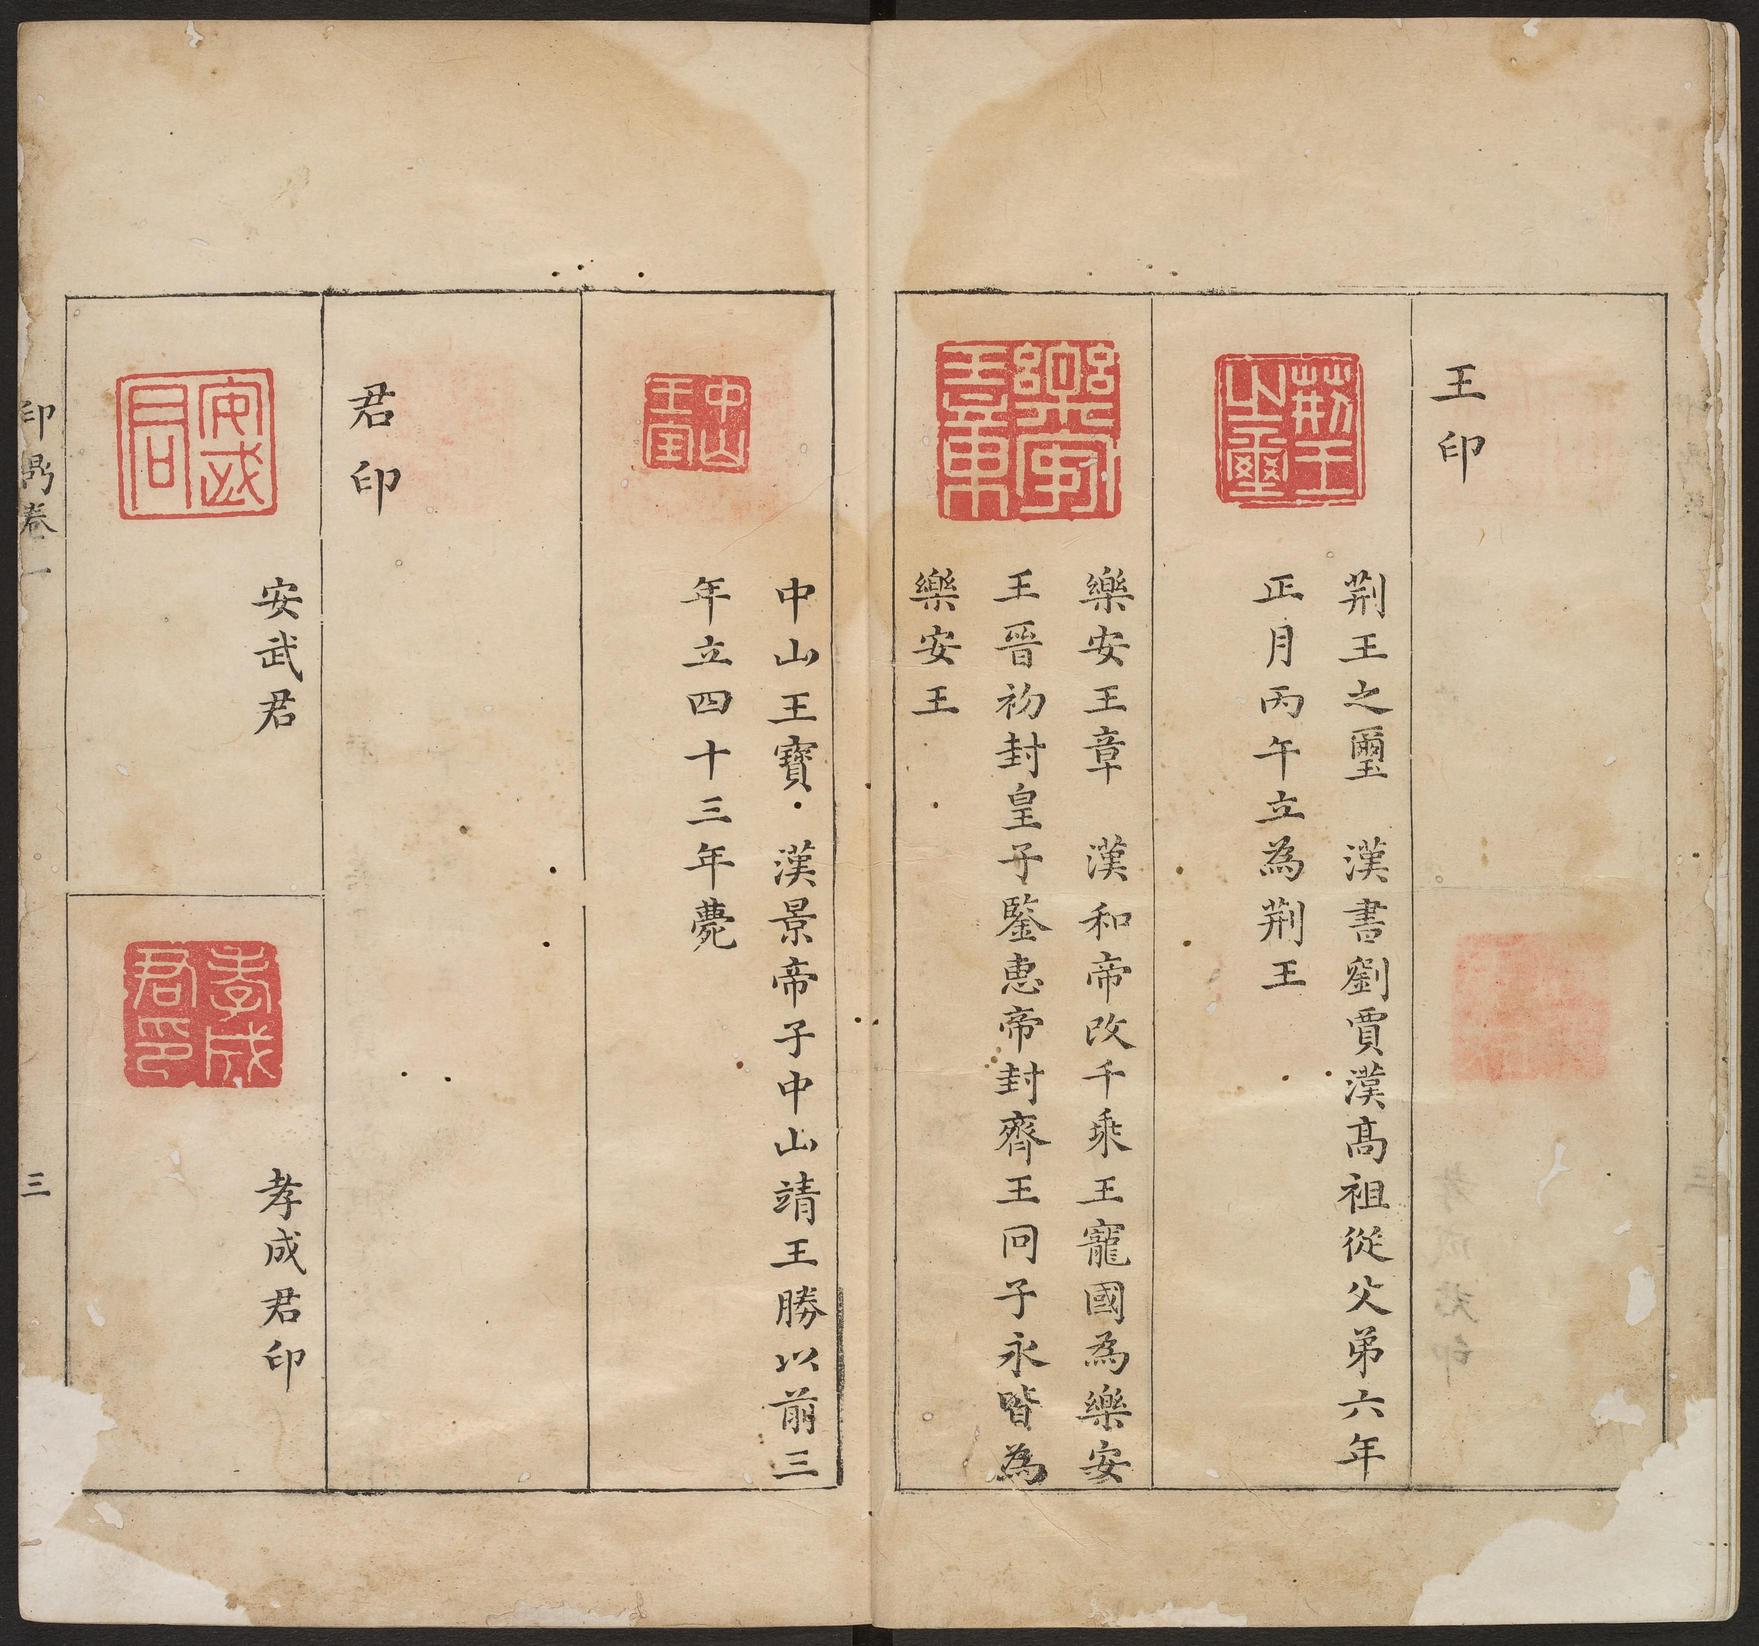 王印
荆王之璽
荆王之璽　漢書劉賈漢髙祖從父弟六年
正月丙午立為荆王
樂安王章
樂安王章　漢和帝改千乘王寵國為樂安
王晉初封皇子鑒惠帝封齊王冏子永皆為
樂安王
中山王寶
中山王寶　漢景帝子中山靖王勝以前三
年立四十三年薨
君印
安武君
安武君
孝成君印
孝成君印
卷一
三